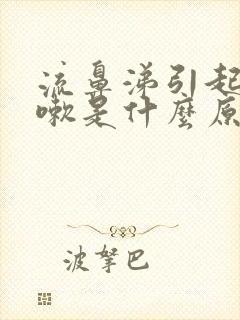 流鼻涕引起
嗽是什麼原
波拏巴